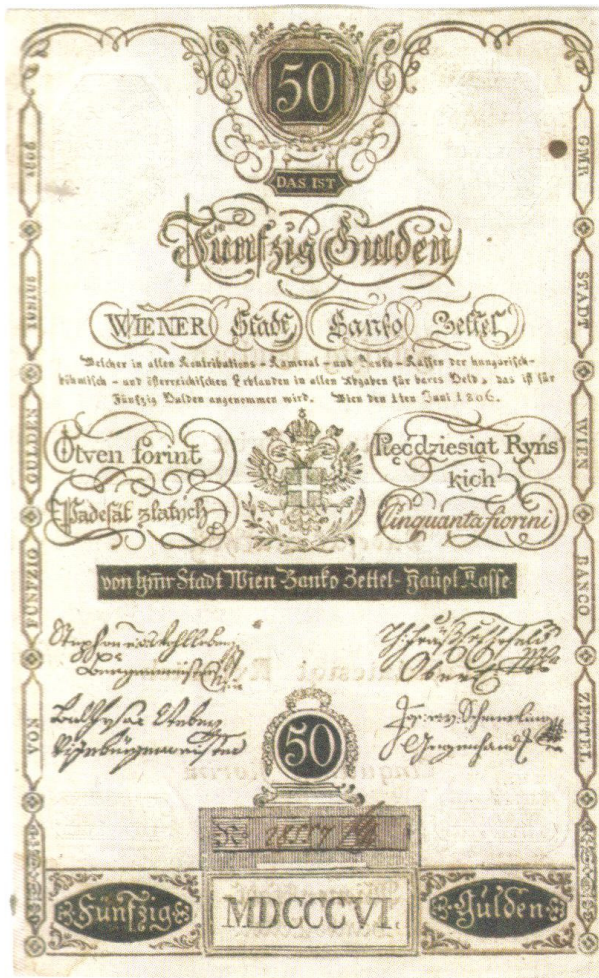 50
DAS IST
Fünfzig Gulden
WIENER Stadt Banko Zettel
Welcher in allen Kontributions - Kameral - und Banko - Kassen der hungarisch-
böhmisch - und österreichischen Erblanden in allen Abgaben für bares Geld, das ist für
Fünfzig Gulden angenommen wird. Wien den 1ten Juni 1806.
Ötven forint
Pięćdziesiąt Ryńs
kich
Padesát zlatých
Cinquanta fiorini
von Stadt Wien Banko Zettel - Haupt Kasse
50
Fünfzig
MDCCCVI.
Gulden
VON
FUNFZIG
GULDEN
GMR
STADT
WIEN
BANCO
ZETTEL